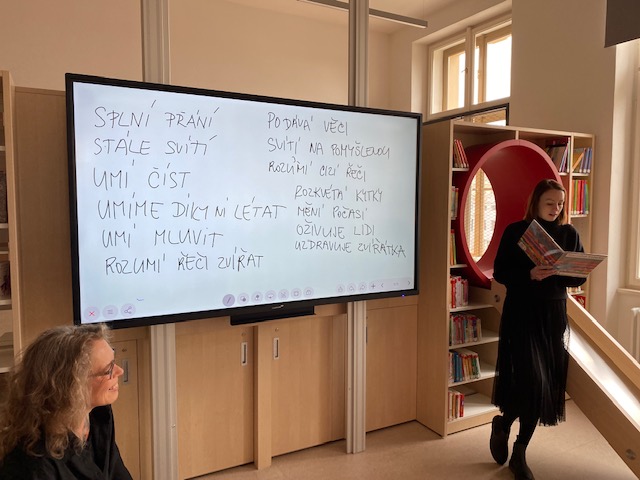 SPLNÍ PŘÁNÍ
STÁLE SVÍTÍ
UMÍ ČÍST
UMÍME DÍKY NÍ LÉTAT
UMÍ MLUVIT
ROZUMÍ ŘEČI ZVÍŘAT
PODÁVÁ VĚCI
SVÍTÍ NA POMYŠLENOU
ROZUMÍ CIZÍ ŘEČI
ROZKVÉTÁ KYTKY
MĚNÍ POČASÍ
OŽIVUJE LIDI
UZDRAVUJE ZVÍŘÁTKA